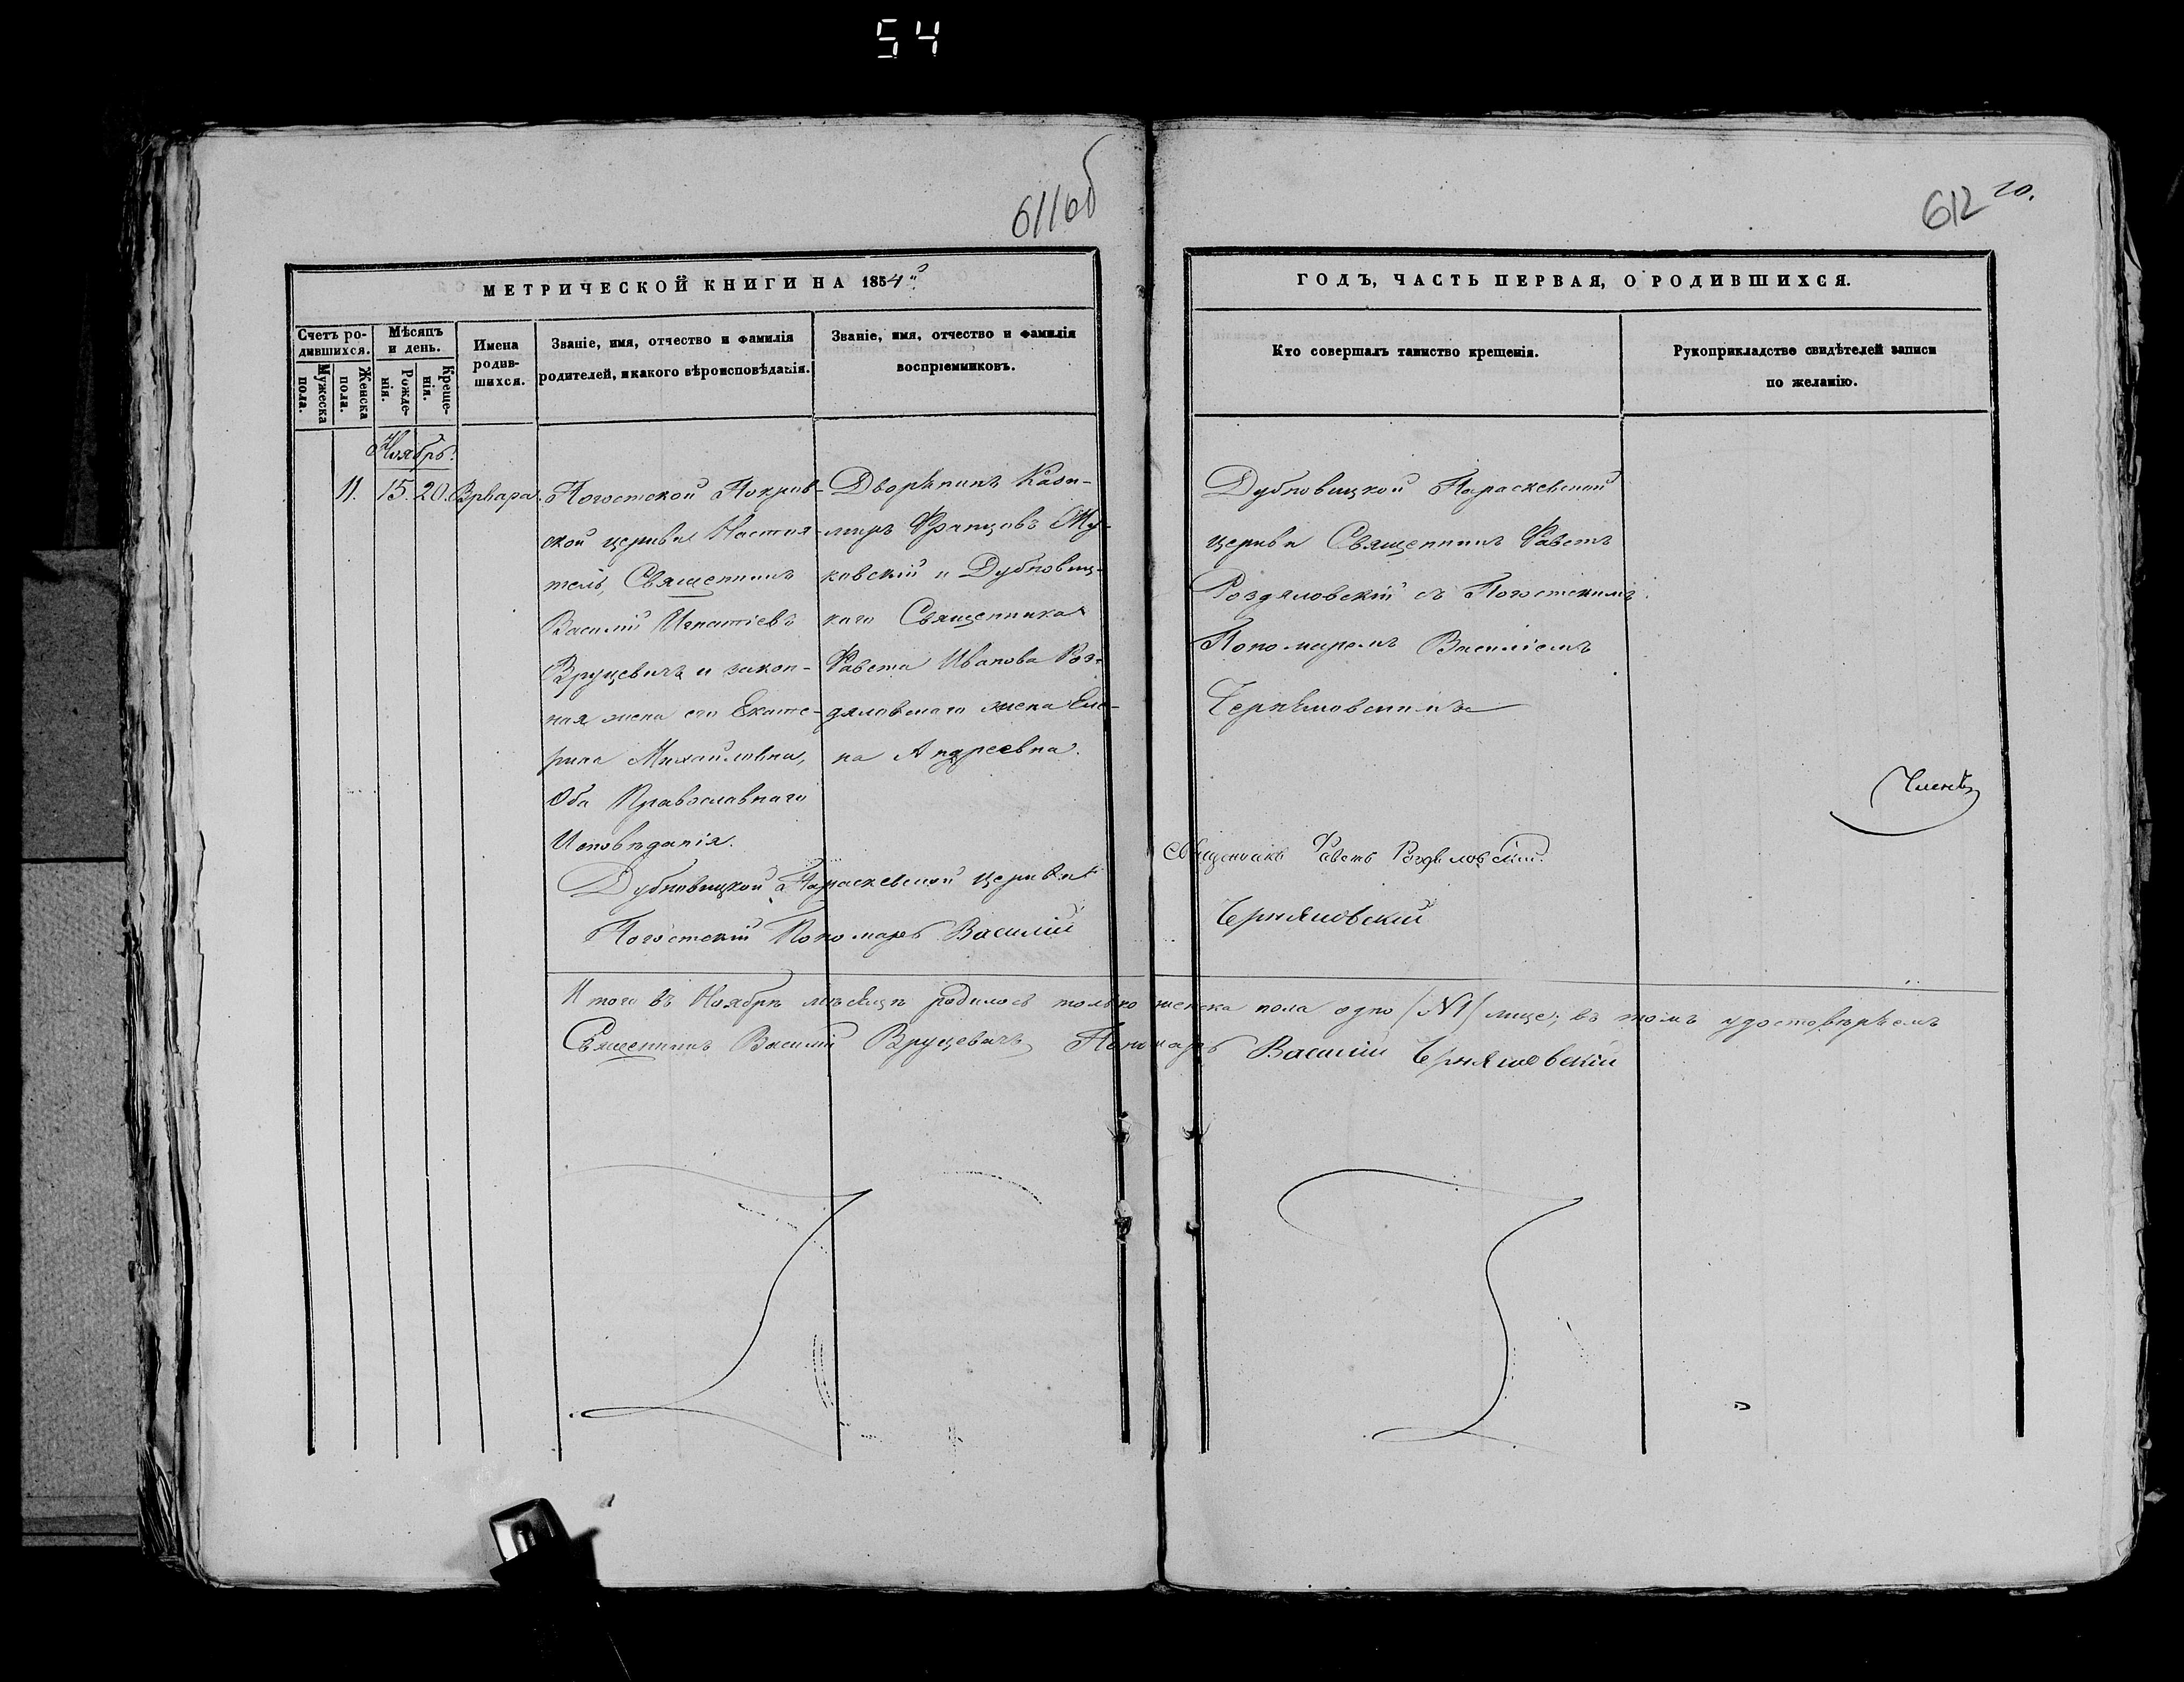 54
611об
612
20.
МЕТРИЧЕСКОЙ КНИГИ НА 1854го
ГОДЪ, ЧАСТЬ ПЕРВАЯ, О РОДИВШИХСЯ.
Счетъ ро-
дившихся.
Мужеска
пола.
Женска
пола.
Мѣсяцъ
и день.
Рожде-
нія.
Креще-
нія.
Имена
родив-
шихся.
Званіе, имя, отчество и фамилія
родителей, и какого вѣроисповѣданія.
Званіе, имя, отчество и фамилія
воспріемниковъ.
Кто совершалъ таинство крещенія.
Рукоприкладство свидѣтелей записи
по желанію.
Ноябрь.
11. 15. 20. Врвара.
Погостской Покров-
ской церкви Настоя-
тель, Священникъ
Василій Игнатіевъ
Вруцевичъ и закон-
ная жена его Екате-
рина Михайловна,
Оба Православнаго
Исповѣданія.
Дворѣнинъ Кази-
миръ Францовъ
ковскій и Дубновиц-
каго Священника
Фавста Иванова Роз-
дяловскаго жена Еле-
на Андреевна.
Дубновицкой Параскевской
церкви Священникъ Фавстъ
Роздяловскій съ Погостскимъ
Пономаремъ Василіемъ
Чернѣховскимъ
Дубновицкой Параскевской церкви Священникъ Фавстъ Роздяловскій.
Погостскій Пономарь Василій Черняховскій
Итого въ Ноябрѣ мѣсяцѣ родилось только женска пола одно (№1) лице; въ томъ удостовѣряемъ
Священникъ Василій Вруцевичъ Пономарь Василій Черняховскій